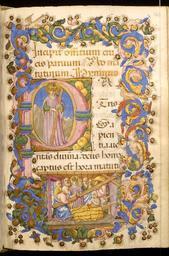 Incipit officium cru
cis parvum Ad ma
tutinum
Pa
tris
sa
pien
tia ue
ritas diuina deus homo
captus est hora matuti